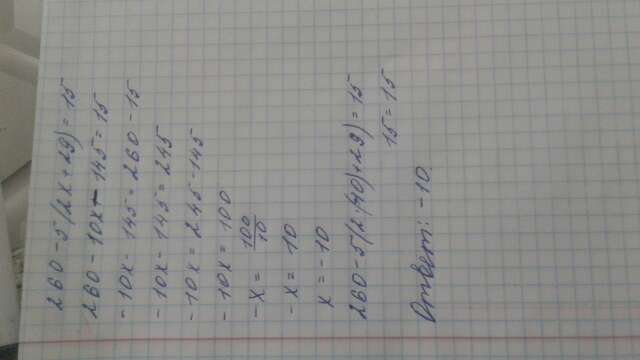 260 - 5(2x + 29) = 15
260 - 10x - 145 = 15
- 10x - 145 = 260 - 15
- 10x - 145 = 245
- 10x = 245 - 145
- 10x = 100
- x = 100/10
- x = 10
x = -10
260 - 5(2·(-10) + 29) = 15
15 = 15
Ответ: -10.